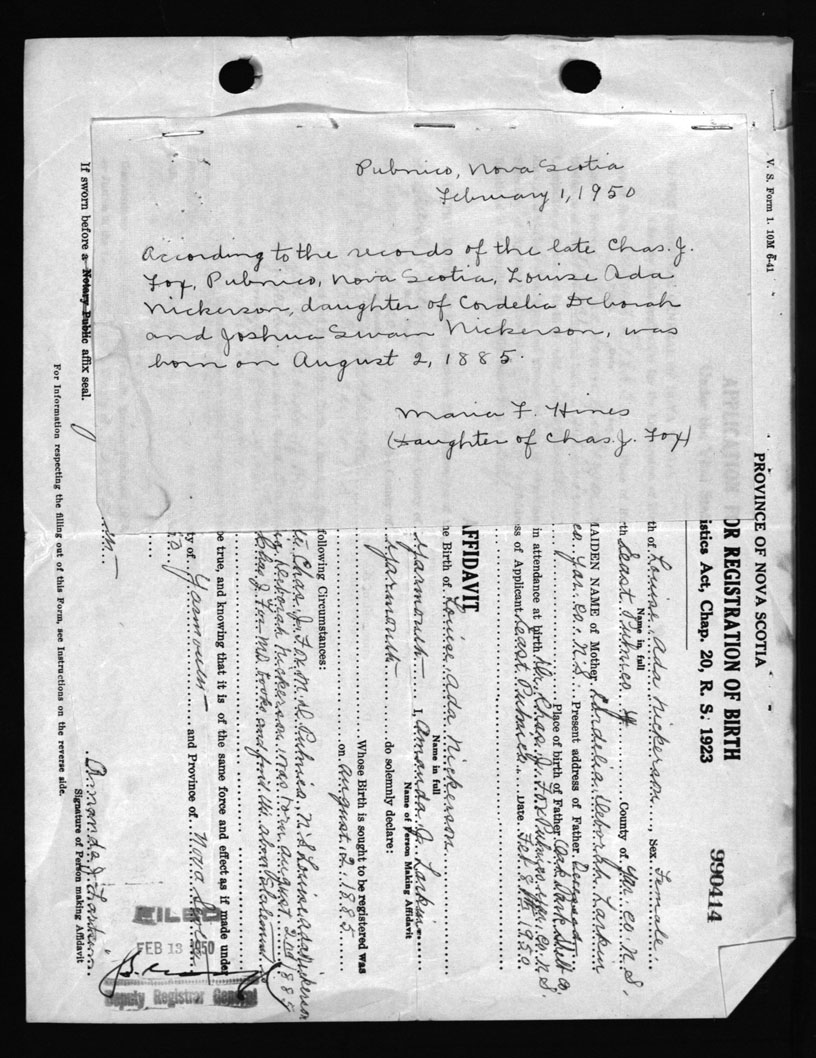 Pubnico, Nova Scotia
February 1, 1950
According to the records of the late Chas. J.
Fox, Pubnico, Nova Scotia, Louise Ada
Nickerson, daughter of Cordelia Deborah
and Joshua Swain Nickerson, was
born on August 2, 1885.
Maria F. Hines
(Daughter of Chas. J. Fox)
V. S. Form 1. 10M 6-41
PROVINCE OF NOVA SCOTIA
OR REGISTRATION OF BIRTH
istics Act, Chap. 20, R. S. 1923
990414
th of Louise Ada Nickerson, Sex Female
Name in full
rth East Pubnico County of Yar. Co. N. S.
MAIDEN NAME of Mother Cordelia Deborah Larkin
co. Yar. Co. N. S. Present address of Father
Place of birth of Father Oak Park
in attendance at birth Dr. Chas. J. Fox Pubnico Yar. Co. N. S.
ss of Applicant East Pubnico Date Feb 8th 1950
AFFIDAVIT
he Birth of Louise Ada Nickerson
Name in full
Yarmouth I, Amanda J. Larkin
Name of Person Making Affidavit
Yarmouth do solemnly declare:
Whose Birth is sought to be registered was
on August 2. 1885
following Circumstances:
Chas. J. Fox M. D. Pubnico, N. S. Louise Ada Nickerson
Deborah Nickerson was born August 2nd 1885
J. Fox MD. books and find the above
be true, and knowing that it is of the same force and effect as if made under
ty of Yarmouth and Province of Nova Scotia
FILED
FEB 13 1950
Deputy Registrar General
Amanda J. Larkin
Signature of Person making Affidavit
If sworn before a Notary Public affix seal.
For Information respecting the filling out of this Form, see Instructions on the reverse side.